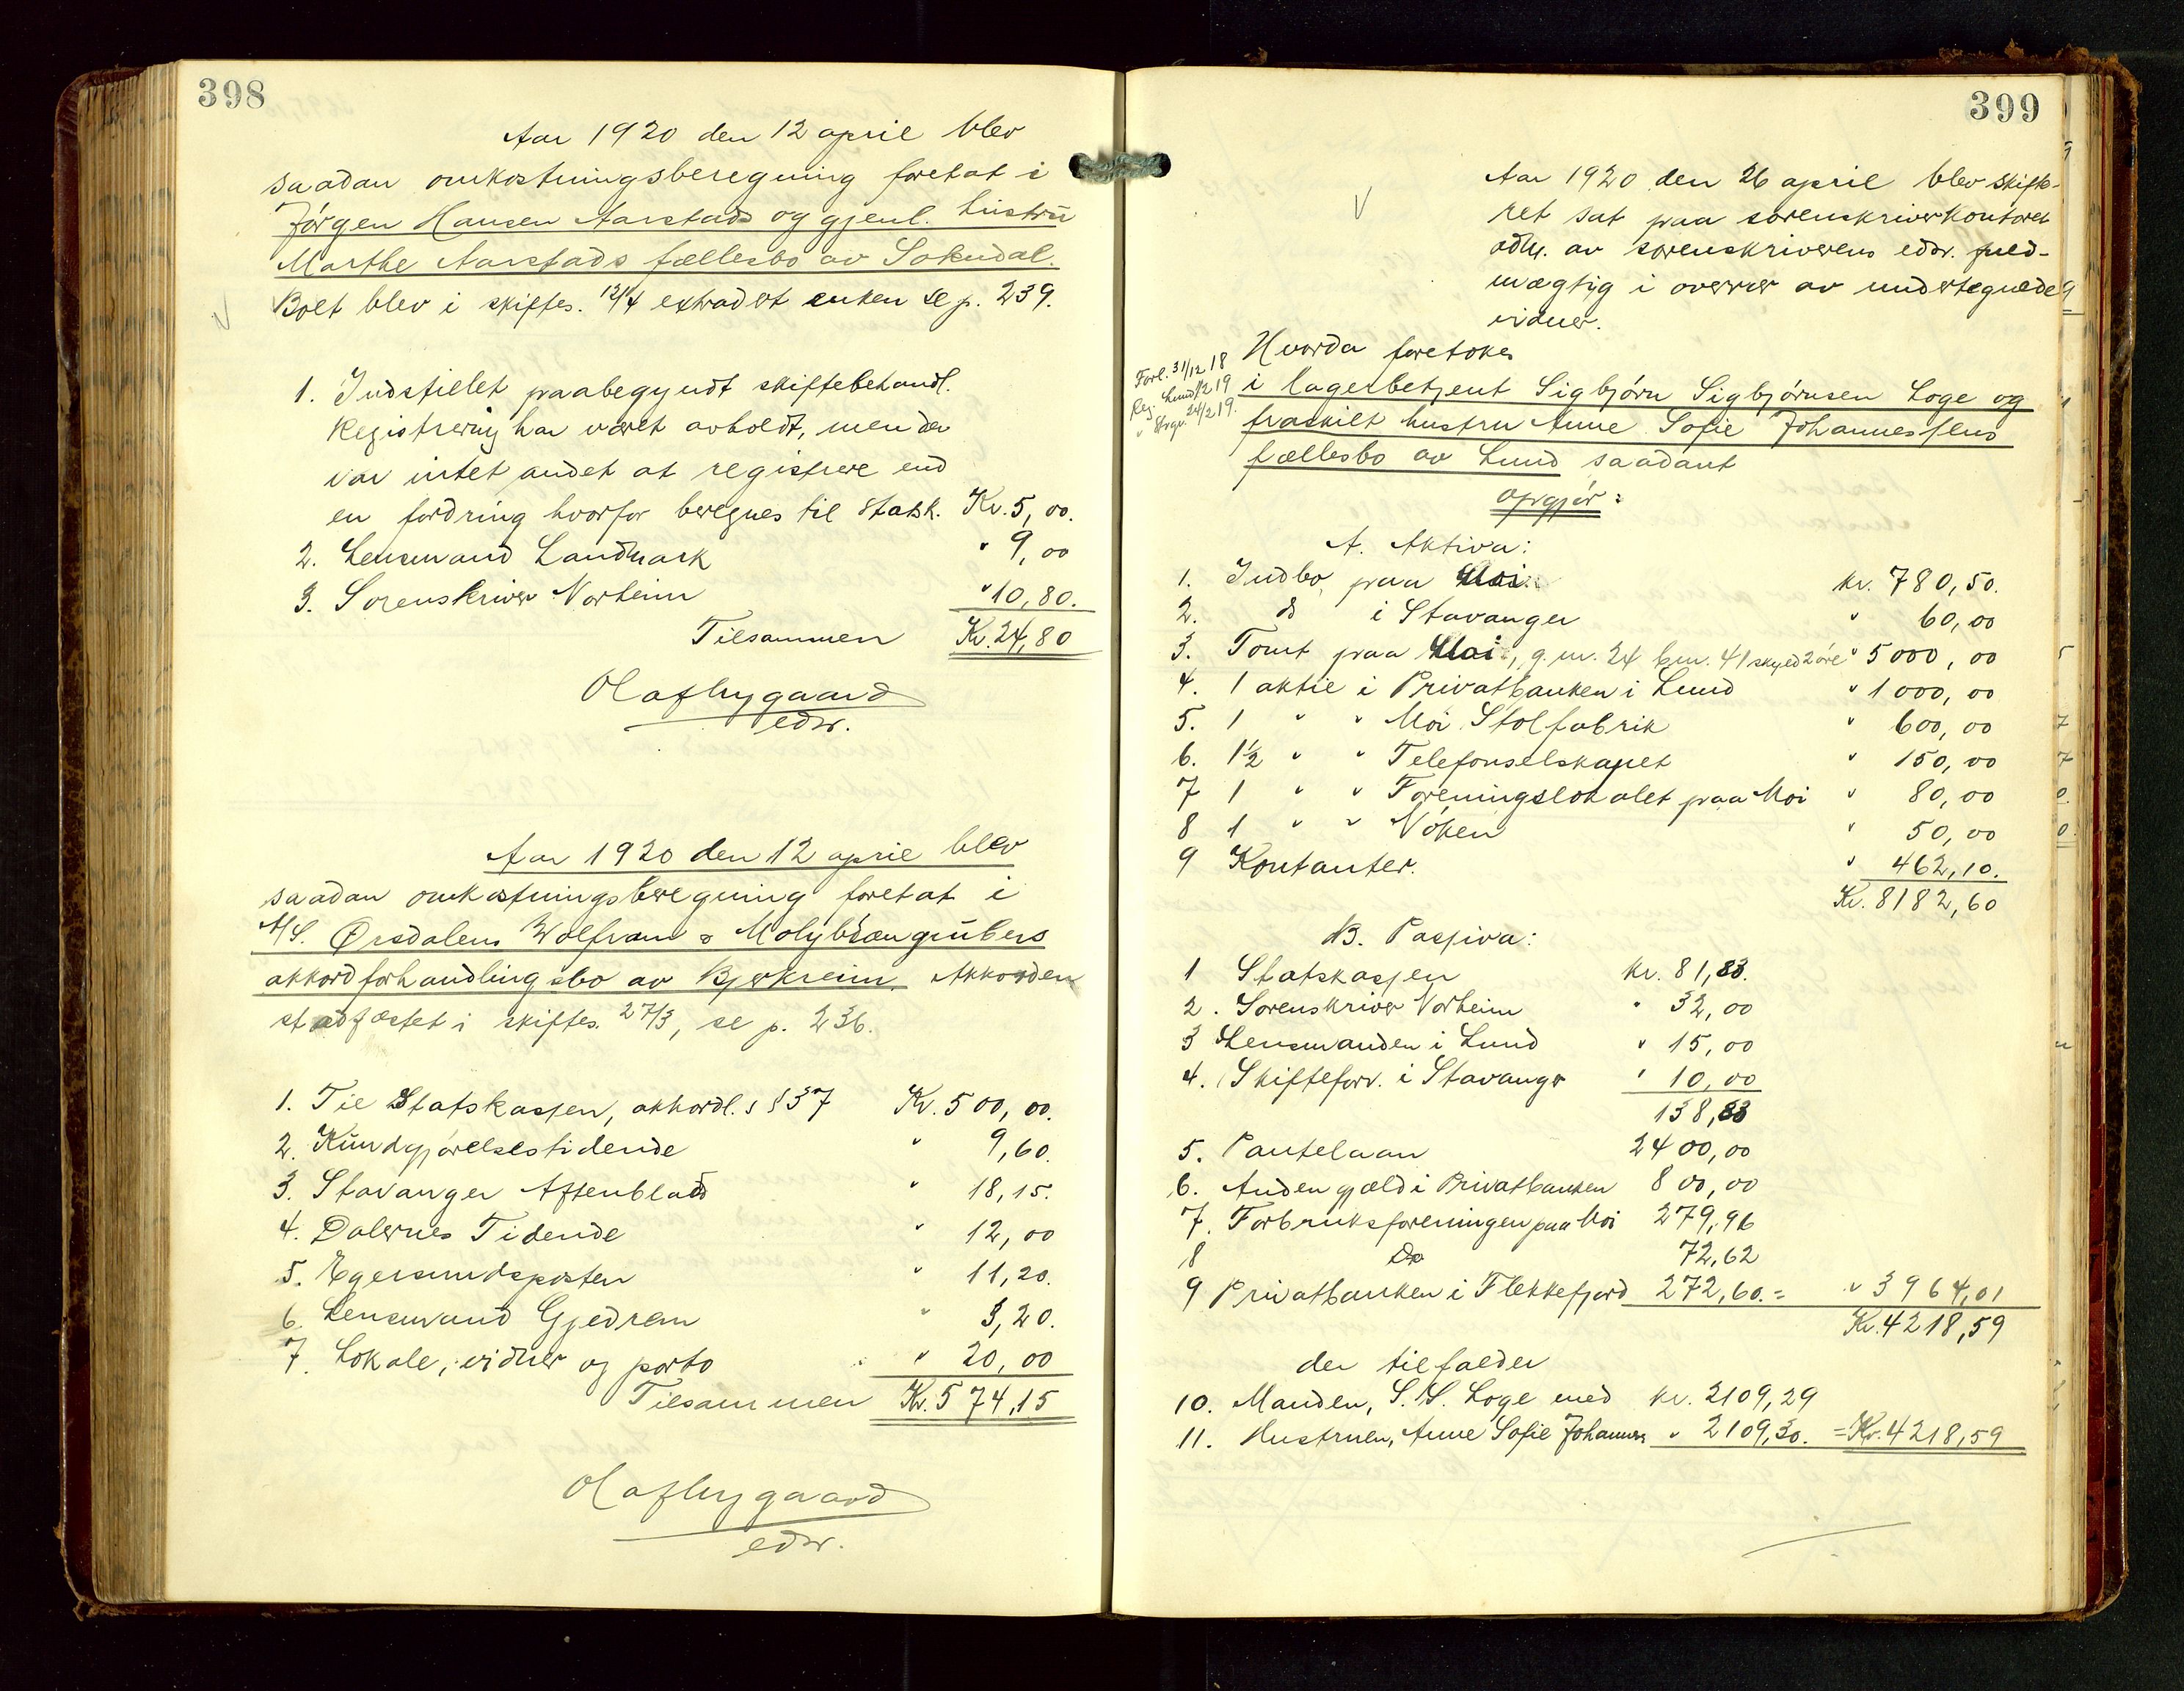 398
Aar 1920 den 12 april blev
saadan omkostningsberegning foretat i
Jörgen Hansen Aarstads og gjenl. hustru
Marthe Aarstads fællesbo av Sokndal.
Boet blev i skiftes. 12/4 extradert enken se p. 239.
1. Indstillet paabegyndt skiftebehandl.
Registrering har været avholdt, men der
var intet andet at registrere end
en fordring hvorfor beregnes til Statsk. Kr. 5,00.
2. Lensmand Landmark " 9,00
3. Sorenskriver Norheim " 10,80.
Tilsammen Kr. 24,80
Olaf Nygaard
edsv.
Aar 1920 den 12 april blev
saadan omkostningsberegning foretat i
A/S. Ørsdalens Wolfram & Molybdængrubers
akkordforhandlingsbo av Bjerkreim. Akkorden
stadfæstet i skiftes. 27/3, se p. 236.
1. Til Statskassen, akkordl. s § 37 Kr. 500,00.
2. Kundgjörelsestidende " 9,60.
3. Stavanger Aftenblad " 18,15.
4. Dalernes Tidende " 12,00
5. Egersundsposten " 11,20.
6. Lensmand Gjedrem " 3,20.
7. Lokale, vidner og porto " 20,00
Tilsammen Kr. 574,15
Olaf Nygaard
edsv.
399
Aar 1920 den 26 april blev skifte-
ret sat paa sorenskriverkontoret
adm. av sorenskriverens edsv. fuld-
mægtig i overvær av undertegnede
vidner.
Hvorda foretokes
Forl. 31/12 18
Reg. Lund 1/2 19
" Stvgr. 24/2 19.
i lagerbetjent Sigbjörn Sigbjörnsen Loge og
fraskilt hustru Anne Sofie Johannessens
fællesbo av Lund saadant
opgjör:
A. Aktiva:
1. Indbo paa Moi kr. 780,50.
2. do i Stavanger " 60,00
3. Tomt paa Moi, g. nr. 24 br. nr. 41 skyld 2 öre " 5000,00
4. 1 aktie i Privatbanken i Lund " 1000,00
5. 1 " " Moi Stolfabrik " 600,00
6. 1½ " " Telefonselskapet " 150,00
7 1 " " Foreningslokalet paa Moi " 80,00
8 1 " " Nöken " 50,00
9 Kontanter. " 462,10.
Kr. 8182,60
B. Passiva:
1 Statskassen kr. 81,83.
2. Sorenskriver Norheim " 32,00
3 Lensmanden i Lund " 15,00
4. Skifteforv. i Stavanger " 10,00
138,83
5. Pantelaan 2400,00
6. Anden gjæld i Privatbanken 800,00
7. Forbruksforeningen paa Moi 279,96
8 Do 72,62
9 Privatbanken i Flekkefjord 272,60. = " 3964,01
Kr. 4218,59
der tilfalder
10. Manden, S. S. Loge med kr. 2109,29
11. Hustruen, Anne Sofie Johannes " 2109,30. = Kr. 4218,59